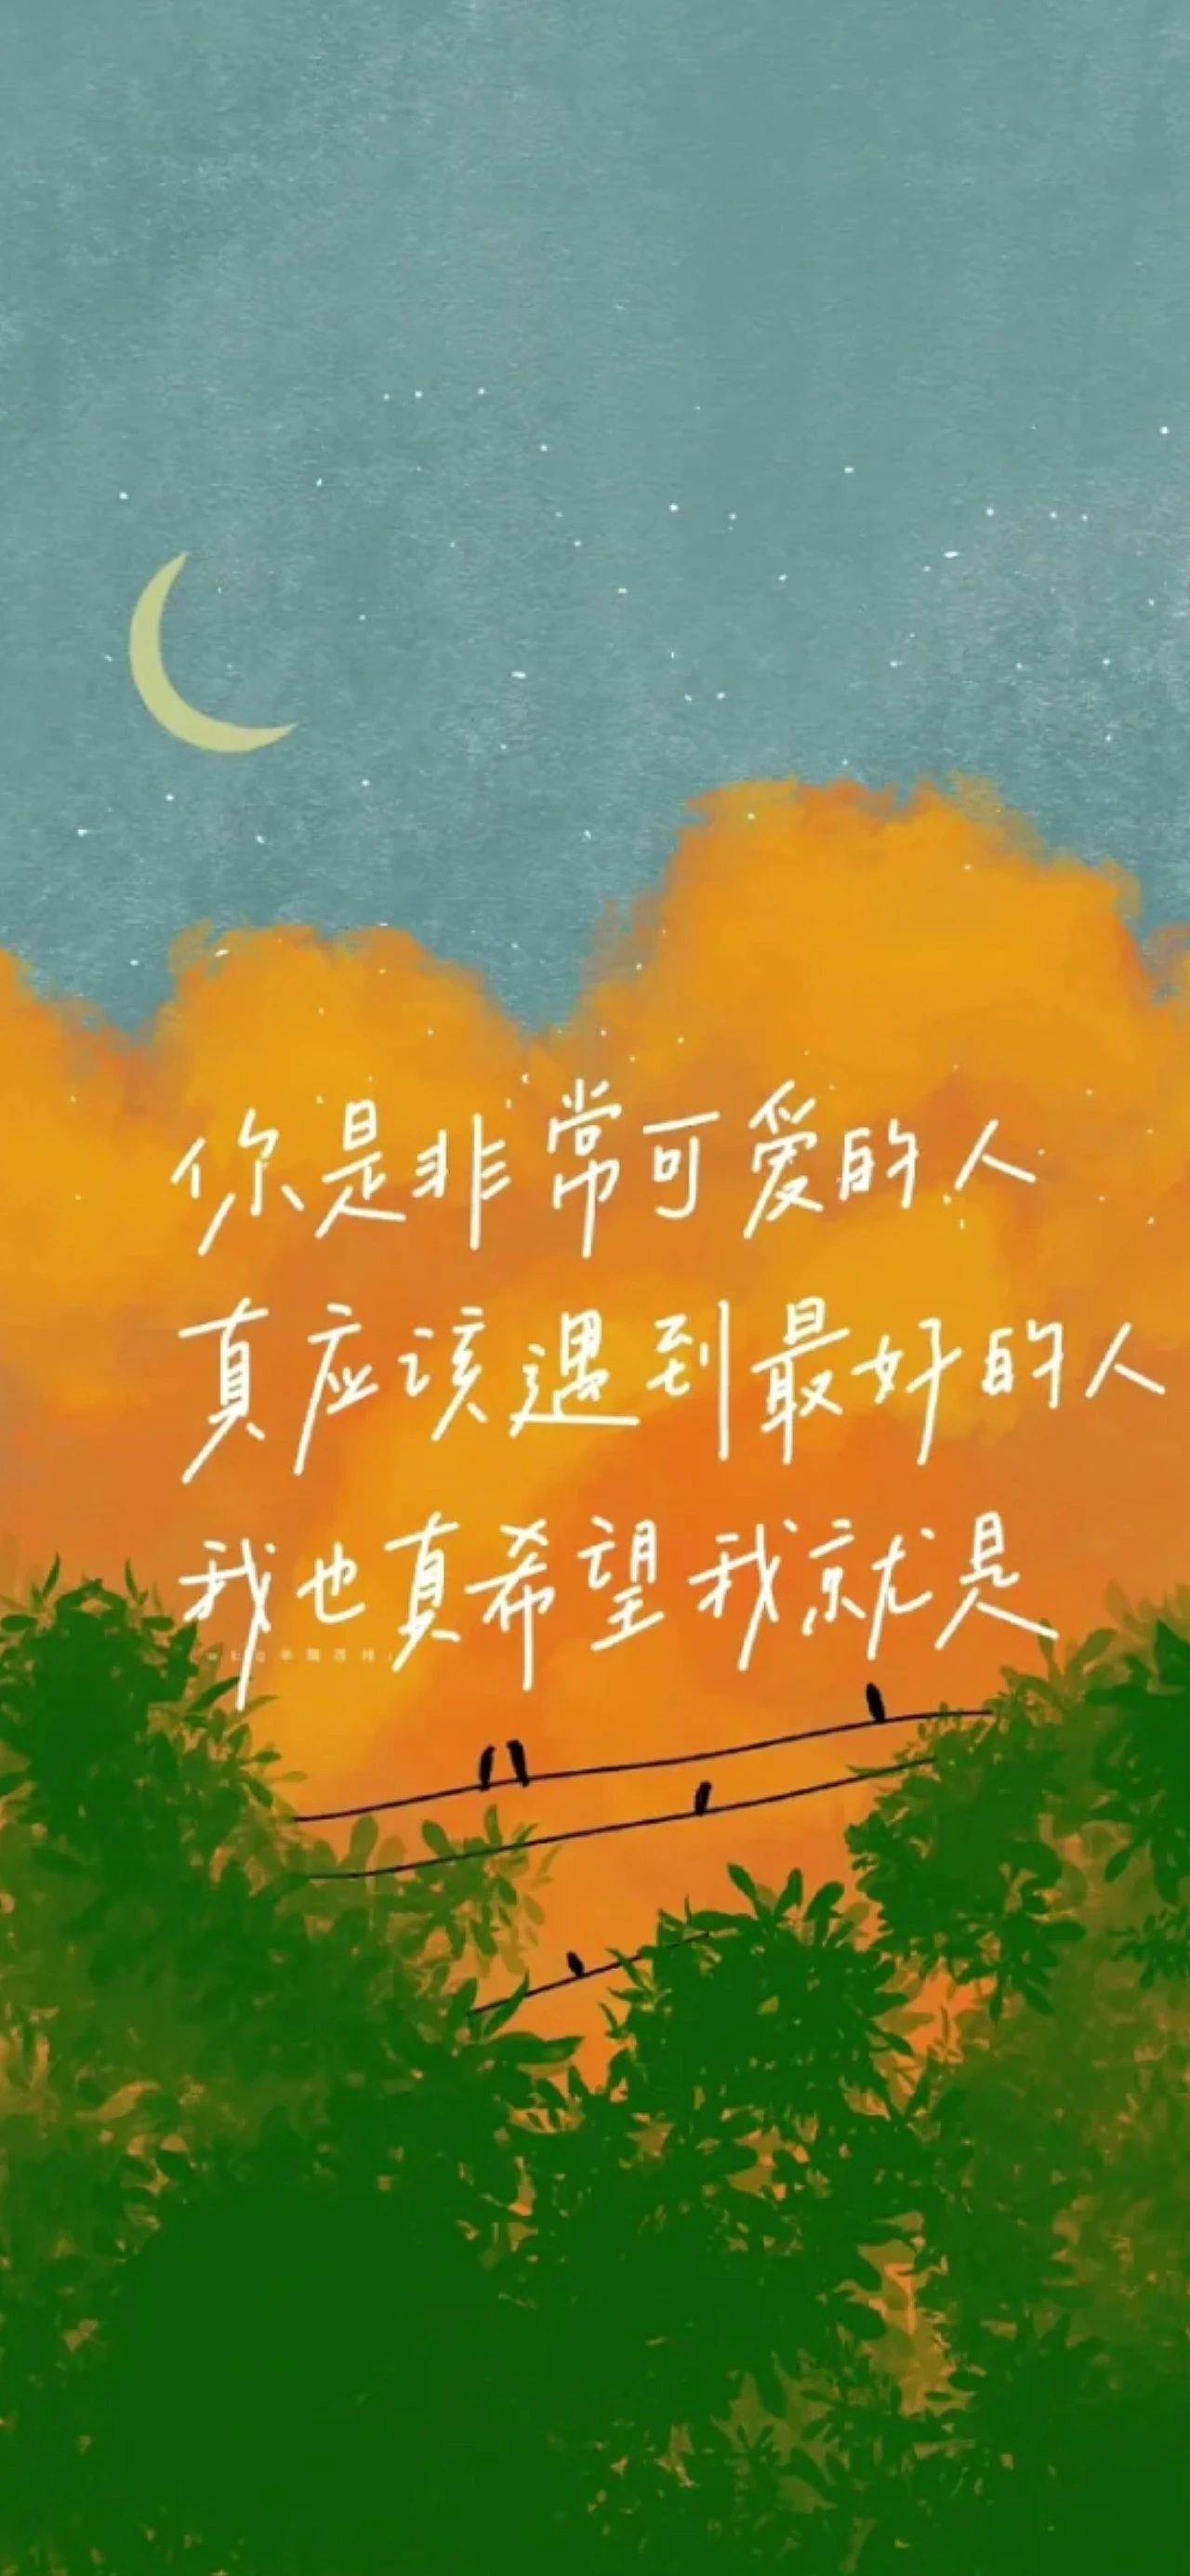 你是非常可爱的人
真应该遇到最好的人
我也真希望我就是